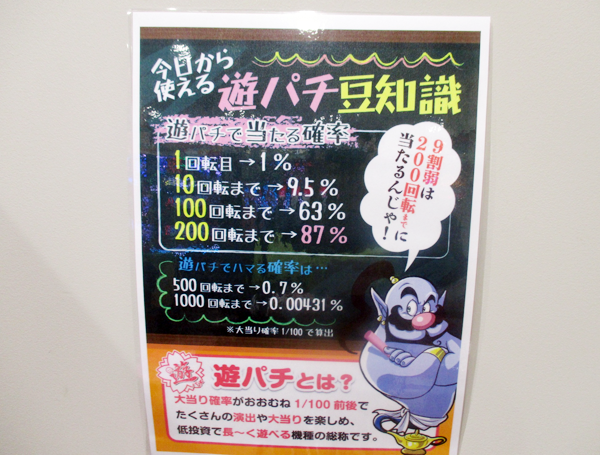 今日から
使える
遊パチ豆知識
遊パチで当たる確率
1回転目→1%
10回転まで→9.5%
100回転まで→63%
200回転まで→87%
9割弱は
200回転までに
当たるんじゃ!
遊パチでハマる確率は…
500回転まで→0.7%
1000回転まで→0.00431%
※大当り確率1/100で算出
遊
遊パチとは?
大当り確率がおおむね1/100前後で
たくさんの演出や大当りを楽しめ、
低投資で長〜く遊べる機種の総称です。